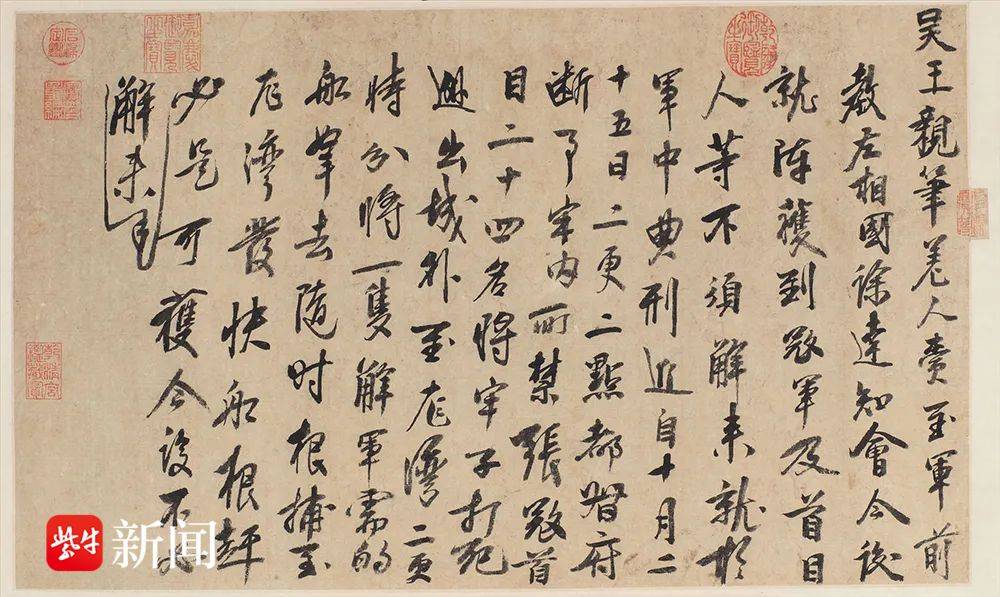 吴王親筆差人賫至軍前
教左相國徐達知會今後
就陣獲到寇軍及首目
人等不須解來就於
軍中典刑近自十月二
十五日二更二點都督府
断事牢内所禁張寇首
目二十四名將牢子打死
出城外至龙灣二更
時分將一隻解軍需的
船拏去隨时根捕至
龙灣發快船根赶
必是可獲今後不必
解來
紫牛新闻